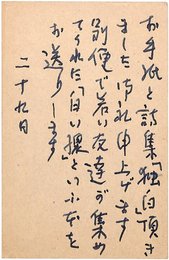 お手紙と詩集「独白」頂き
ました 御礼申上げます
別便で若い友達が集め
てくれた「白い裸」といふ本を
お送りします
二十九日